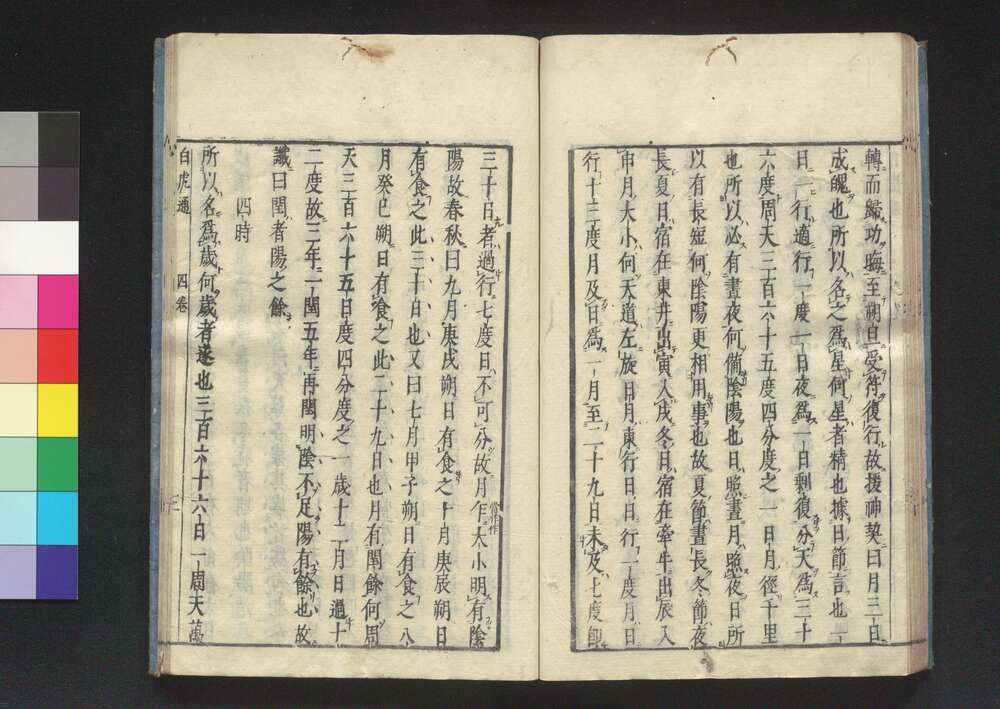 轉而歸功晦至朔旦受符復行故援神契曰月三日
成魄也所以名之爲星何星者精也據日節言也一
日一行適行一度一日夜爲一日剩復分天爲三十
六度周天三百六十五度四分度之一日月徑千里
也所以必有晝夜何備陰陽也日照晝月照夜日所
以有長短何陰陽更相用事也故夏節晝長冬節夜
長夏日宿在東井出寅入戌冬日宿在牽牛出辰入
申月大小何天道左旋日月東行日日行一度月日
行十三度月及日爲一月至二十九日未及七度卽
三十日者過行七度日不可分故月乍大小明有陰
當作作
陽故春秋曰九月庚戌朔日有食之十月庚辰朔日
有食之此三十日也又曰七月甲子朔日有食之八
月癸巳朔日有食之此二十九日也月有閏餘何周
天三百六十五日度四分度之一歲十二月日過十
二度故三年一閏五年再閏明陰不足陽有餘也故
讖曰閏者陽之餘
四時
所以名爲歲何歲者遂也三百六十六日一周天萬
白虎通 四卷 三